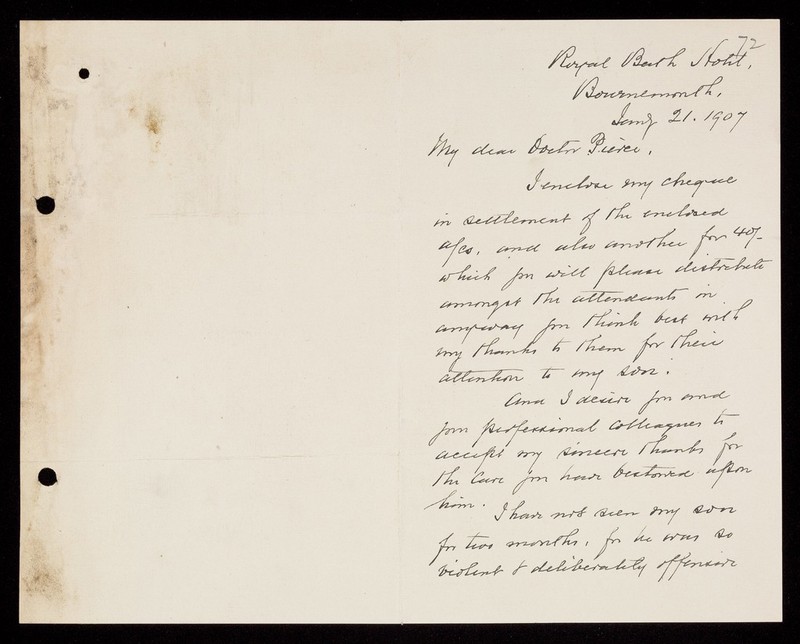 72
Royal Bath Hotel,
Bournemouth,
Jany 21. 1907
My dear Doctor Pierce,
I enclose my cheque
in settlement of the enclosed
a/cs, and also another for 40/-
which you will please distribute
amongst the attendants in
anyway you think best with
my thanks to them for their
attention to my son.
And I desire you and
your professional Colleagues to
accept my sincere thanks for
the Care you have bestowed upon
him.
I have not seen my son
for two months, for he was so
violent & deliberately offensive